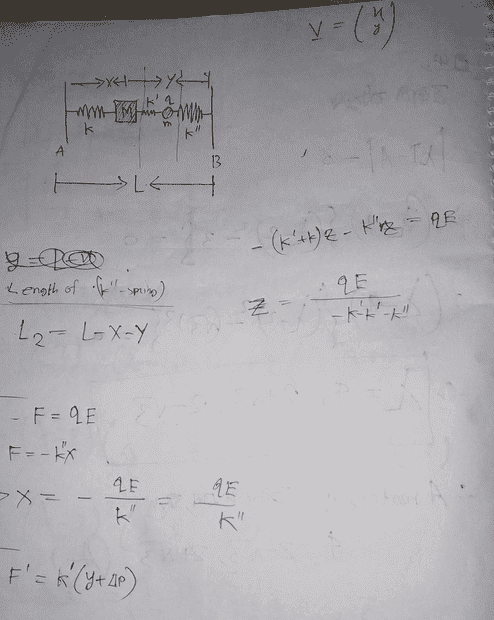 V = (x y)
x y
k M k' q m k''
A B
L
- (k'+k)z - k''z = qE
Length of (k''-spring)
z = qE / -k-k'-k''
L2 = L-x-y
F = qE
F = -k''x
x = - qE / k'' = qE / k''
F' = k'(y+Δp)